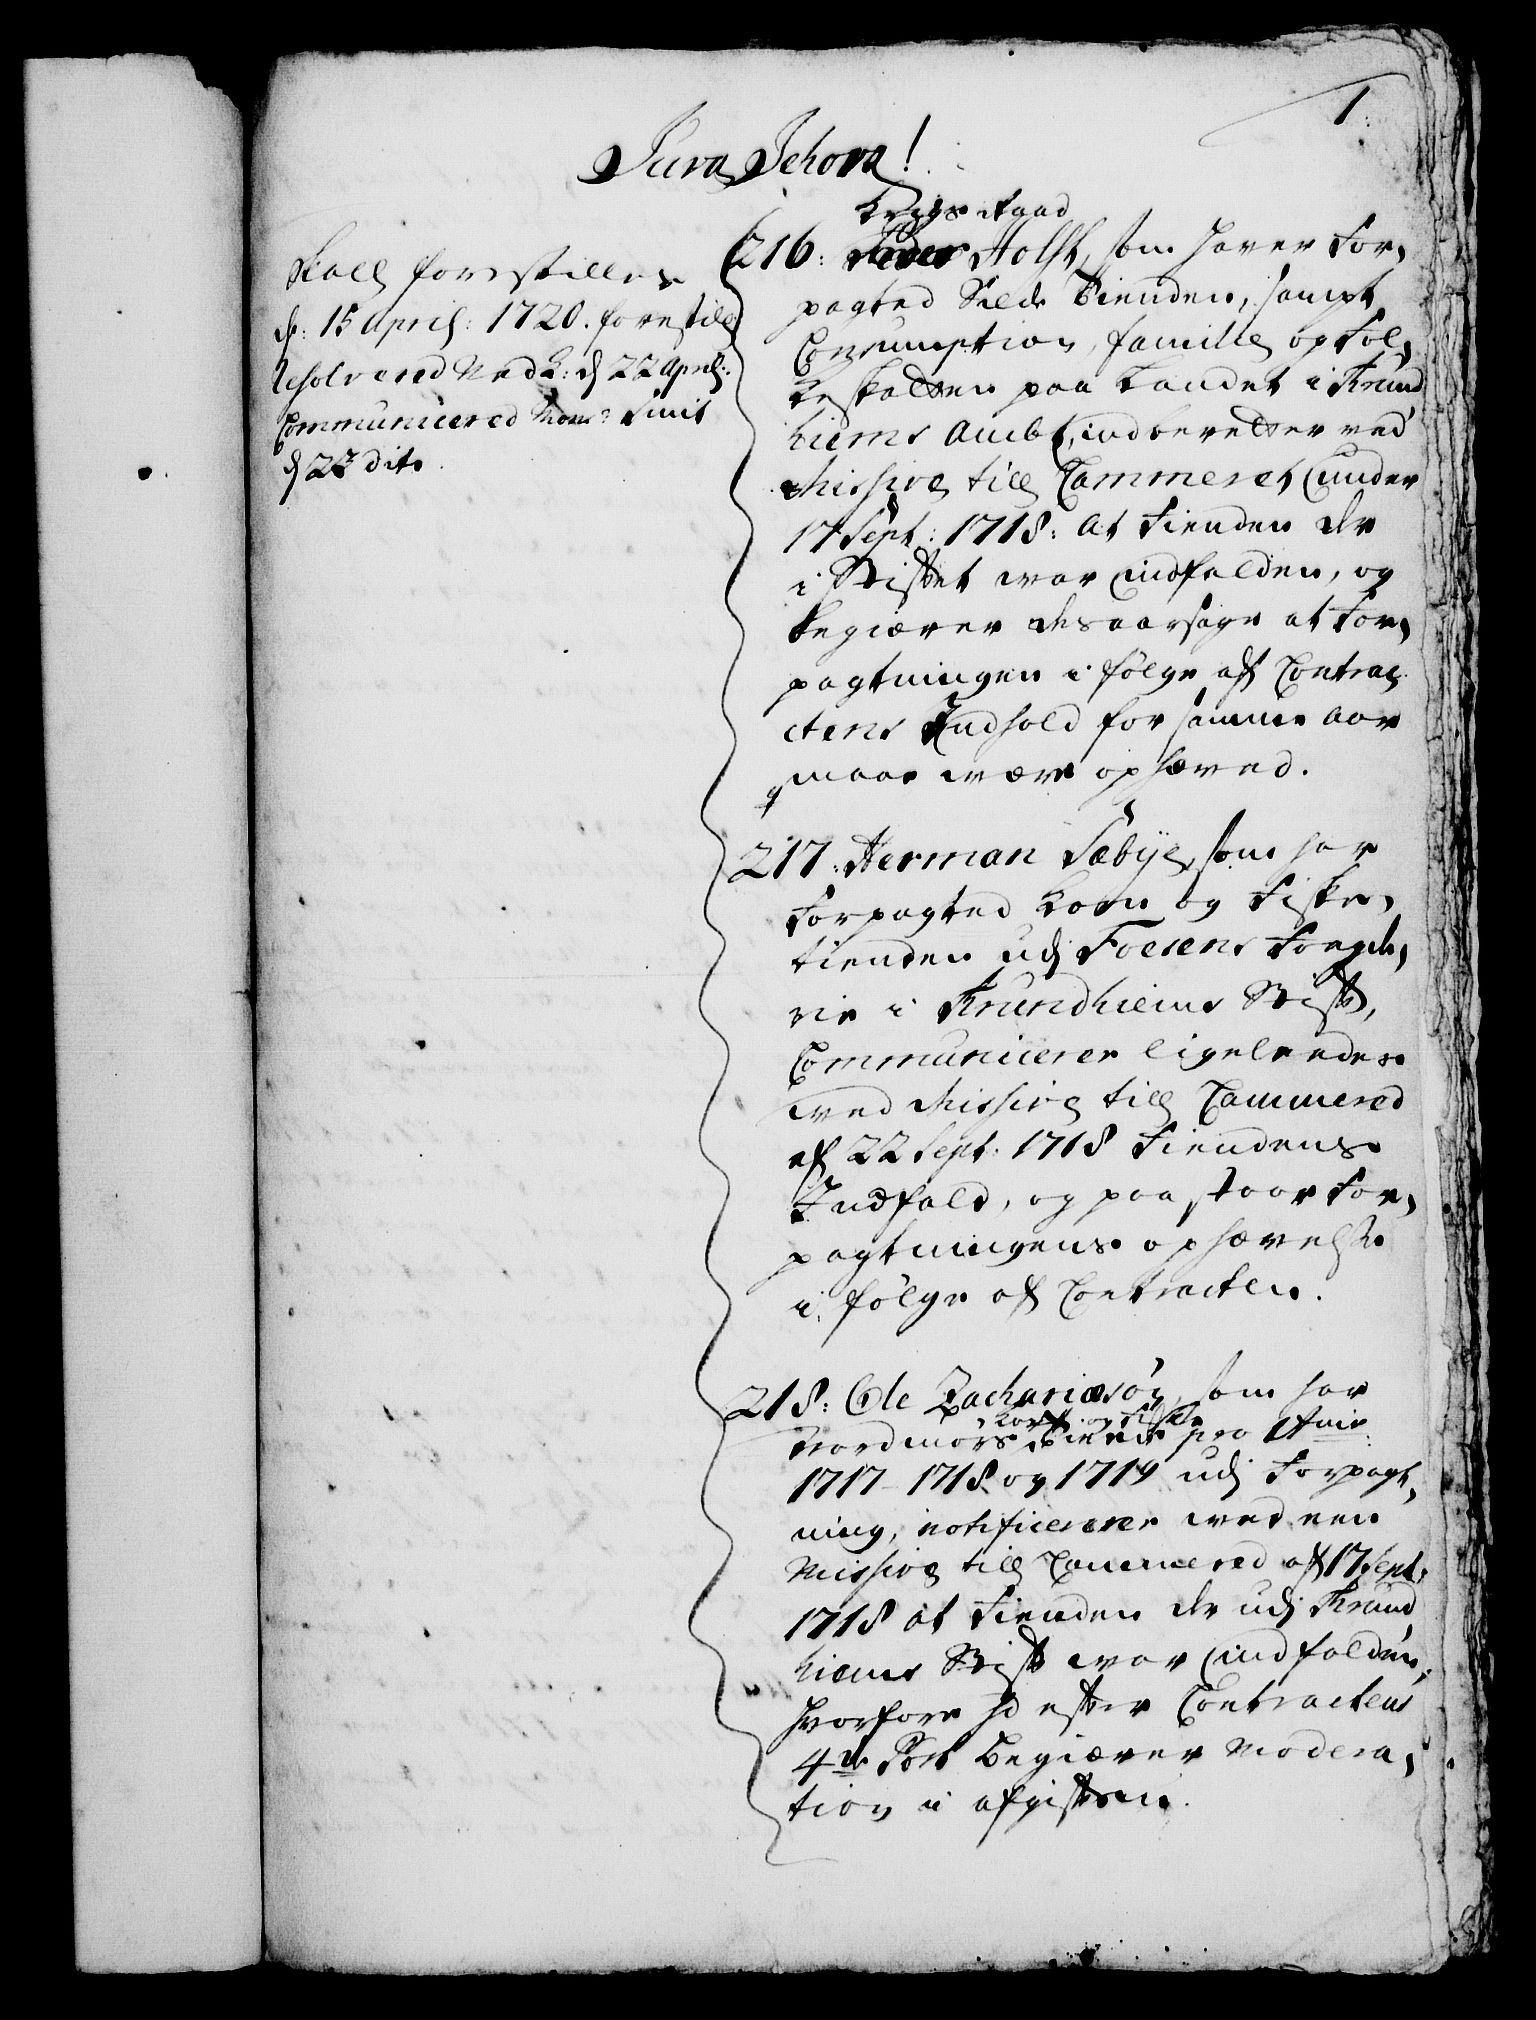 1.
Juva Jehova!
Skall forestilles
d: 15 april: 1720. forestilt
Resolvered Med L: d 22 April:
Communicered Mons: Smit
d 23 dito.
Krigs Raad
216: Peder Holst, som haver for-
pagted Silde Tienden, sampt
Consumption, familie og Fol-
keskatten paa Landet i Trund
hiems Ambt, indberetter ved
Missive till Cammeret under
17 Sept: 1718: At Fienden der
i Stiftet war indfalden, og
begiærer desaarsage at For-
pagtningen i følge aff Contrac-
tens Indhold for samme Aar
maae være ophæved.
217: Herman Sæbye, som har
forpagted Korn og Fiske-
tienden udj Foesens Fogde-
rie i Trundhiems Stift,
Communicerer ligeleedes
wed Missive till Cammered
af 22 Sept: 1718 Fiendens
Indfald, og paastaar For-
pagtningens ophævelse
i følge af Contracten.
218: Ole Zachariæsøn, som har
Nordmørs Korn og Fiske Tiende pro Anis
1717 - 1718 og 1719 udj Forpagt-
ning, notificerer wed een
Missive till Cammered af 17 Sept:
1718 at Fienden der udj Trund
hiems Stift war indfalden,
hvorfore hd efter Contractens
4de Post begiærer Modera-
tion i afgiften.